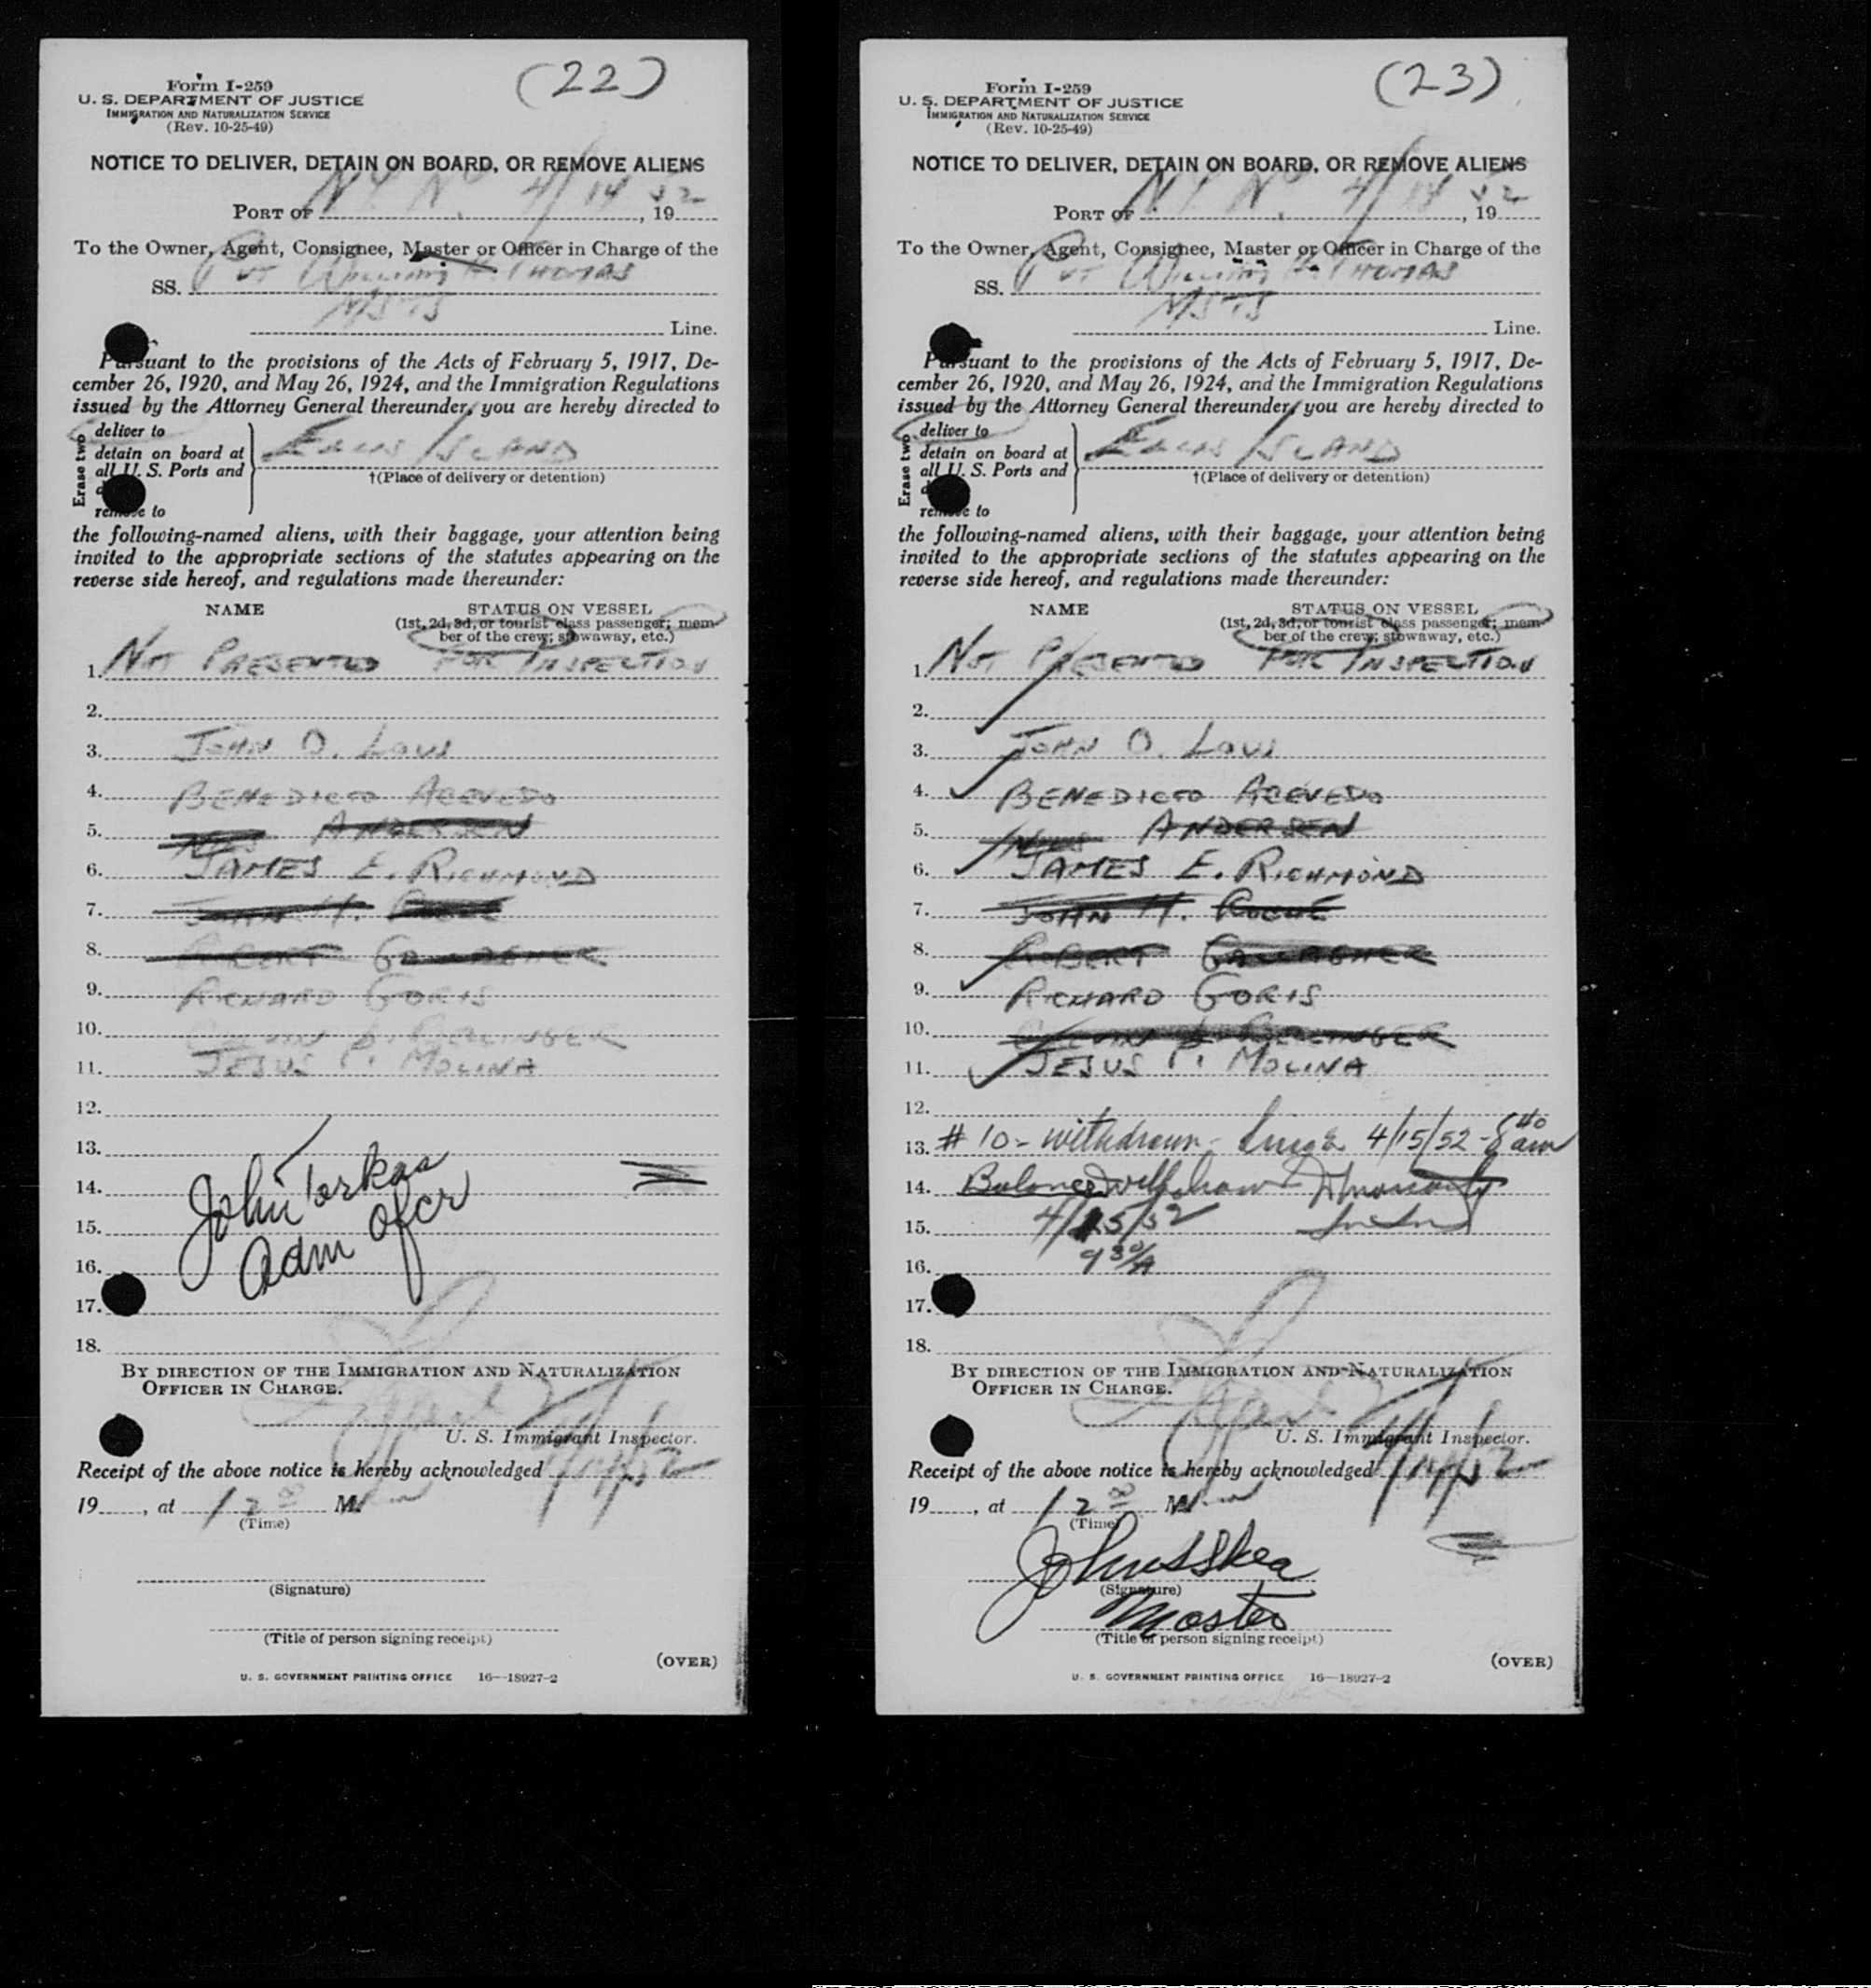 (22)
Form I-259
U. S. DEPARTMENT OF JUSTICE
IMMIGRATION AND NATURALIZATION SERVICE
(Rev. 10-25-49)
NOTICE TO DELIVER, DETAIN ON BOARD, OR REMOVE ALIENS
PORT OF N Y N. 4/14, 1952
To the Owner, Agent, Consignee, Master or Officer in Charge of the
SS. Pvt William H. THOMAS
MSTS
Line.
Pursuant to the provisions of the Acts of February 5, 1917, De-
cember 26, 1920, and May 26, 1924, and the Immigration Regulations
issued by the Attorney General thereunder, you are hereby directed to
Erase two
deliver to
detain on board at
all U. S. Ports and
remove to
ELLIS ISLAND
†(Place of delivery or detention)
the following-named aliens, with their baggage, your attention being
invited to the appropriate sections of the statutes appearing on the
reverse side hereof, and regulations made thereunder:
NAME STATUS ON VESSEL
(1st, 2d, 3d, or tourist class passenger; mem-
ber of the crew; stowaway, etc.)
1. NOT PRESENTED FOR INSPECTION
2.
3. JOHN O. LOUI
4. BENEDICTO ACEVEDO
5. ANDERSEN
6. JAMES E. RICHMOND
7. JOHN H.
8. ROBERT GALLAGHER
9. RICHARD GORIS
10. BERLINGER
11. JESUS P. MOLINA
12.
13.
14. John Torkas
15. Adm Ofcr
16.
17.
18.
BY DIRECTION OF THE IMMIGRATION AND NATURALIZATION
OFFICER IN CHARGE.
U. S. Immigrant Inspector.
Receipt of the above notice is hereby acknowledged 4/14/52
19, at 12 00 M.
(Time)
(Signature)
(Title of person signing receipt)
(OVER)
U. S. GOVERNMENT PRINTING OFFICE 16—18927-2
(23)
Form I-259
U. S. DEPARTMENT OF JUSTICE
IMMIGRATION AND NATURALIZATION SERVICE
(Rev. 10-25-49)
NOTICE TO DELIVER, DETAIN ON BOARD, OR REMOVE ALIENS
PORT OF N Y N. 4/14, 1952
To the Owner, Agent, Consignee, Master or Officer in Charge of the
SS. Pvt William H. THOMAS
MSTS
Line.
Pursuant to the provisions of the Acts of February 5, 1917, De-
cember 26, 1920, and May 26, 1924, and the Immigration Regulations
issued by the Attorney General thereunder, you are hereby directed to
Erase two
deliver to
detain on board at
all U. S. Ports and
remove to
ELLIS ISLAND
†(Place of delivery or detention)
the following-named aliens, with their baggage, your attention being
invited to the appropriate sections of the statutes appearing on the
reverse side hereof, and regulations made thereunder:
NAME STATUS ON VESSEL
(1st, 2d, 3d, or tourist class passenger; mem-
ber of the crew; stowaway, etc.)
1. NOT PRESENTED FOR INSPECTION
2.
3. JOHN O. LOUI
4. BENEDICTO ACEVEDO
5. ANDERSEN
6. JAMES E. RICHMOND
7. JOHN H.
8. ROBERT GALLAGHER
9. RICHARD GORIS
10. BERLINGER
11. JESUS P. MOLINA
12.
13. # 10 - withdrawn - 4/15/52 - 8 40 am
14. Balance withdrawn
15. 4/15/52
16. 9 30/A
17.
18.
BY DIRECTION OF THE IMMIGRATION AND NATURALIZATION
OFFICER IN CHARGE.
U. S. Immigrant Inspector.
Receipt of the above notice is hereby acknowledged 4/14/52
19, at 12 00 M.
(Time)
John S Shea
(Signature)
Master
(Title of person signing receipt)
(OVER)
U. S. GOVERNMENT PRINTING OFFICE 16—18927-2